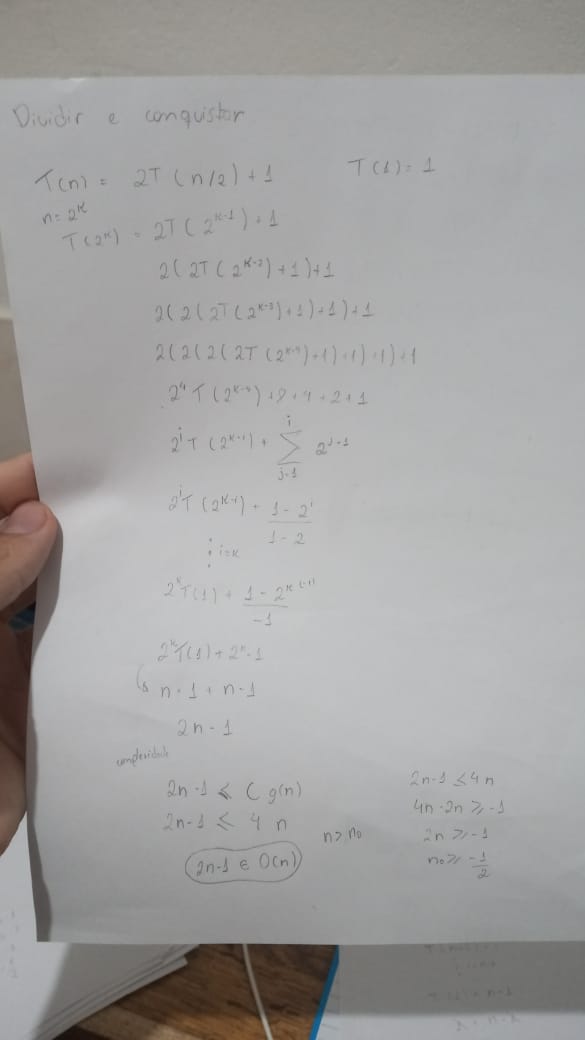 Dividir e conquistar
T(n) = 2T(n/2) + 1 T(1) = 1
n = 2^k
T(2^k) = 2T(2^{k-1}) + 1
2(2T(2^{k-2}) + 1) + 1
2(2(2T(2^{k-3}) + 1) + 1) + 1
2(2(2(2T(2^{k-4}) + 1) + 1) + 1) + 1
2^4 T(2^{k-4}) + 8 + 4 + 2 + 1
2^i T(2^{k-i}) + \sum_{j=1}^{i} 2^{j-1}
2^i T(2^{k-i}) + \frac{1 - 2^i}{1 - 2}
⋮ i=k
2^k T(1) + \frac{1 - 2^k (-1)}{-1}
2^k T(1) + 2^k - 1
n · 1 + n - 1
2n - 1
complexidade
2n - 1 ≤ C g(n)
2n - 1 ≤ 4 n
n > n0
2n-1 ∈ O(n)
2n-1 ≤ 4n
4n - 2n ≥ -1
2n ≥ -1
n0 ≥ -\frac{1}{2}